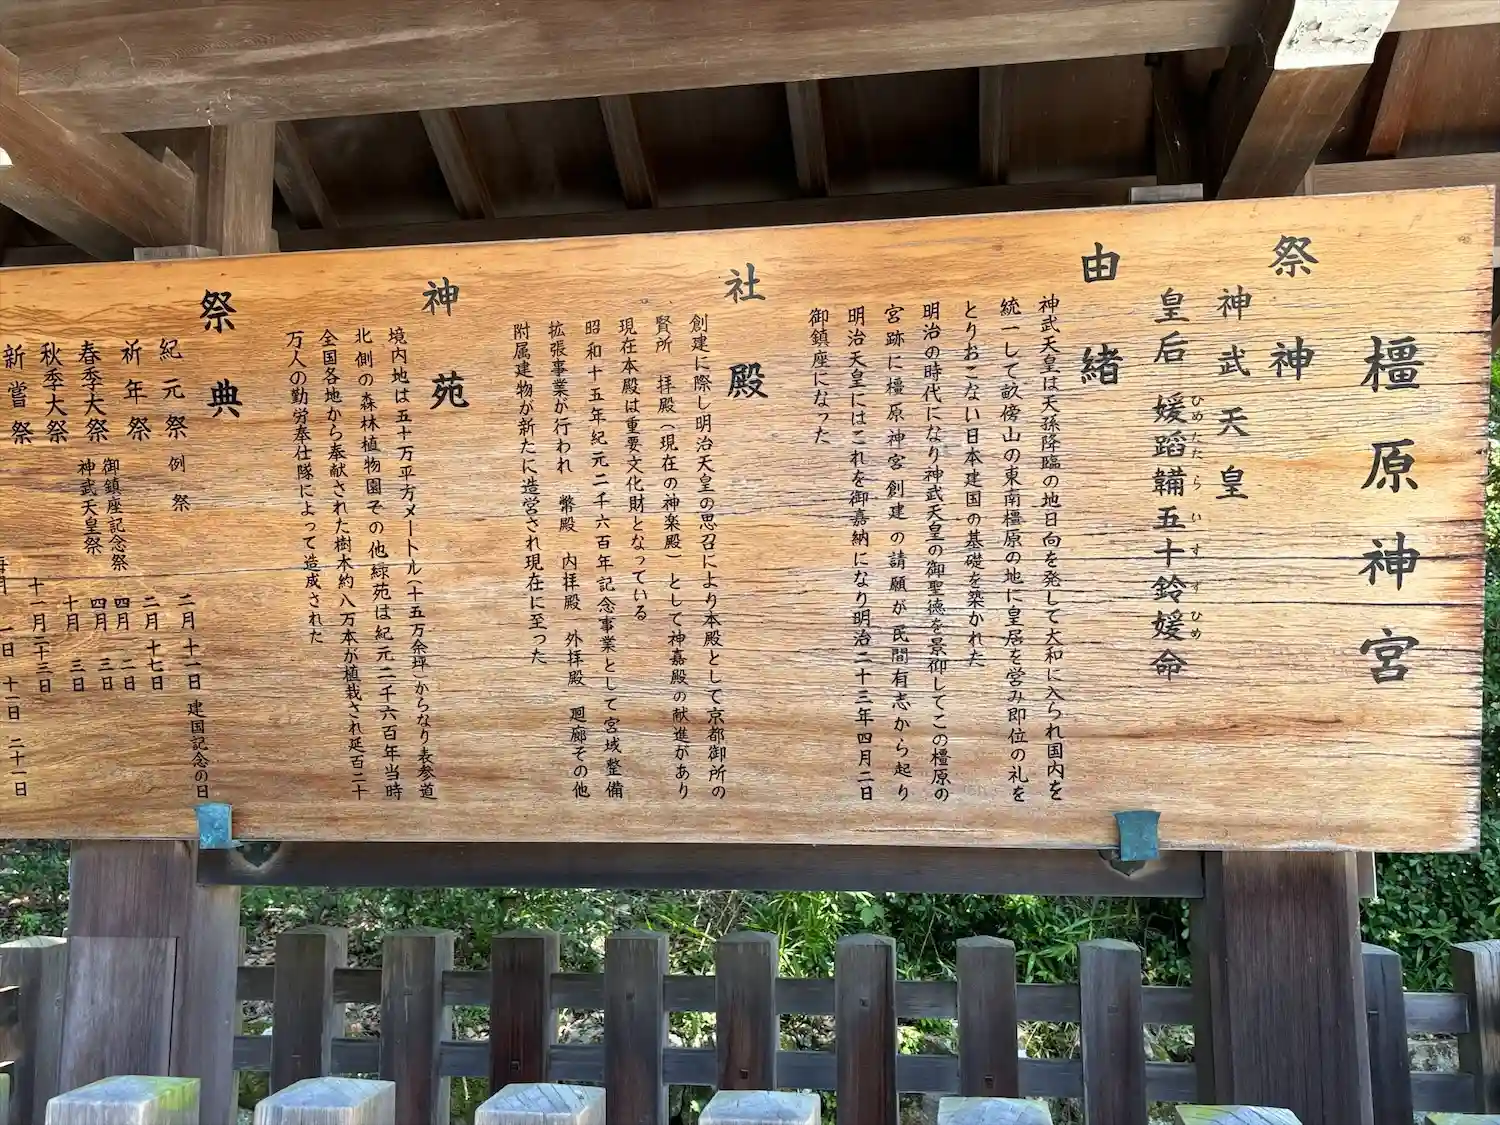 橿原神宮
祭神
神武天皇
皇后 媛蹈韛五十鈴媛命
ひめたたらいすずひめ
由緒
神武天皇は天孫降臨の地日向を発して大和に入られ国内を
統一して畝傍山の東南橿原の地に皇居を営み即位の礼を
とりおこない日本建国の基礎を築かれた
明治の時代になり神武天皇の御聖徳を景仰してこの橿原の
宮跡に橿原神宮創建の請願が民間有志から起り
明治天皇にはこれを御嘉納になり明治二十三年四月二日
御鎮座になった
社殿
創建に際し明治天皇の思召により本殿として京都御所の
賢所 拝殿(現在の神楽殿)として神嘉殿の献進があり
現在本殿は重要文化財となっている
昭和十五年紀元二千六百年記念事業として宮域整備
拡張事業が行われ 幣殿 内拝殿 外拝殿 廻廊その他
附属建物が新たに造営され現在に至った
神苑
境内地は五十万平方メートル(十五万余坪)からなり表参道
北側の森林植物園その他緑苑は紀元二千六百年当時
全国各地から奉献された樹木約八万本が植栽され延百二十
万人の勤労奉仕隊によって造成された
祭典
紀元祭 例祭 二月十一日 建国記念の日
祈年祭 二月十七日
御鎮座記念祭 四月二日
春季大祭 神武天皇祭 四月三日
秋季大祭 十月三日
新嘗祭 十一月二十三日
毎月 一日 十一日 二十一日